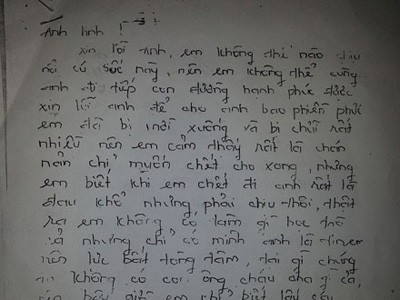 Anh linh !
xin lỗi anh, em không thể nào chịu
nổi cú sốc này, nên em không thể cùng
anh đi tiếp con đường hạnh phúc được
xin lỗi anh để cho anh bao phiền phức
em đã bị xuống và bị chửi rất
nhiều nên em cảm thấy rất là chán
nản chỉ muốn chết cho xong, nhưng
em biết khi em chết đi anh rất là
đau khổ nhưng phải chịu thôi, thật
ra em không có làm gì
nhưng chỉ có mình anh là
nên lúc bất tâm, gì chúng
không có con ông cháu cha gì cả,
bây giờ em chỉ biết lấy